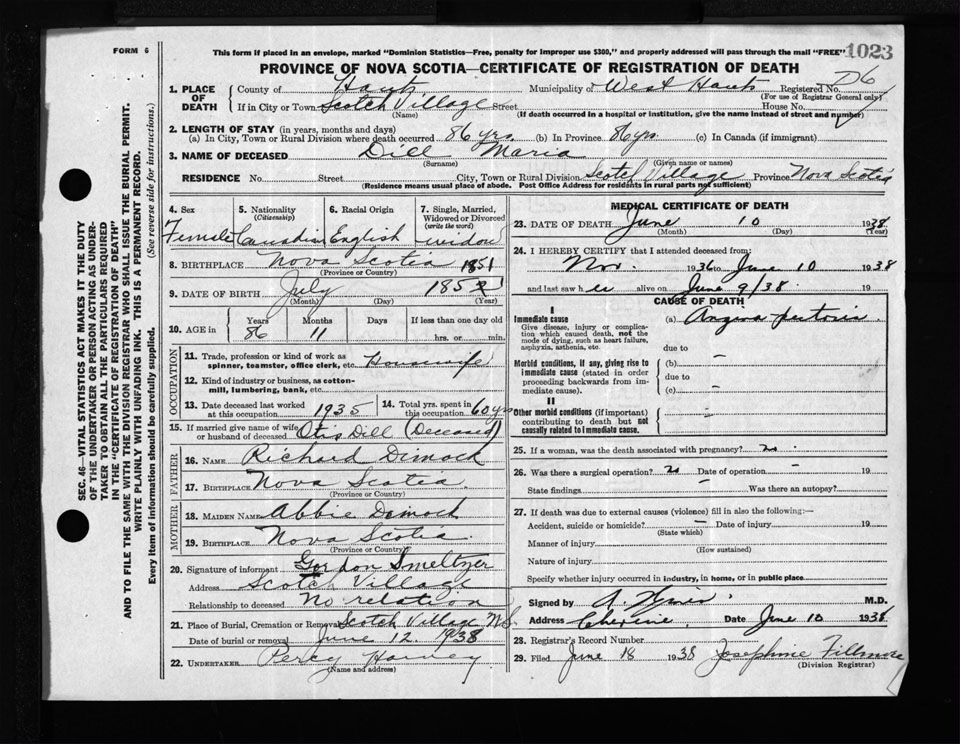 FORM 6
This form if placed in an envelope, marked "Dominion Statistics—Free, penalty for improper use $300," and properly addressed will pass through the mail "FREE"
1023
PROVINCE OF NOVA SCOTIA—CERTIFICATE OF REGISTRATION OF DEATH
D6
1. PLACE OF DEATH
County of Hants Municipality of West Hants Registered No.
(For use of Registrar General only)
If in City or Town Scotch Village Street House No.
(Name) (If death occurred in a hospital or institution, give the name instead of street and number)
2. LENGTH OF STAY (in years, months and days)
(a) In City, Town or Rural Division where death occurred 86 yrs (b) In Province 86 yrs. (c) In Canada (if immigrant)
3. NAME OF DECEASED Dill Maria
(Surname) (Given name or names)
RESIDENCE No. Street City, Town or Rural Division Scotch Village Province Nova Scotia
(Residence means usual place of abode. Post Office Address for residents in rural parts not sufficient)
4. Sex 5. Nationality (Citizenship) 6. Racial Origin 7. Single, Married, Widowed or Divorced (write the word)
Female Canadian English widow
8. BIRTHPLACE Nova Scotia
(Province or Country)
1851
9. DATE OF BIRTH July 1852
(Month) (Day) (Year)
10. AGE in Years Months Days If less than one day old
86 11 hrs. or min.
OCCUPATION
11. Trade, profession or kind of work as spinner, teamster, office clerk, etc. Housewife
12. Kind of industry or business, as cotton-mill, lumbering, bank, etc.
13. Date deceased last worked at this occupation 1935 14. Total yrs. spent in this occupation 60 yrs
15. If married give name of wife or husband of deceased Otis Dill (Deceased)
FATHER
16. NAME Richard Dimock
17. BIRTHPLACE Nova Scotia
(Province or Country)
MOTHER
18. MAIDEN NAME Abbie Dimock
19. BIRTHPLACE Nova Scotia.
(Province or Country)
20. Signature of informant Gordon Smeltzer
Address Scotch Village
Relationship to deceased No relation
21. Place of Burial, Cremation or Removal Scotch Village N.S.
Date of burial or removal June 12 1938
22. UNDERTAKER Percy Harvey
(Name and address)
MEDICAL CERTIFICATE OF DEATH
23. DATE OF DEATH June 10 1938
(Month) (Day) (Year)
24. I HEREBY CERTIFY that I attended deceased from:
Nov. 1936 to June 10 1938
and last saw her alive on June 9/38. 19
CAUSE OF DEATH
I
Immediate cause (a) Angina pectoris
Give disease, injury or complication which caused death, not the mode of dying, such as heart failure, asphyxia, asthenia, etc.
due to –
Morbid conditions, if any, giving rise to immediate cause (stated in order proceeding backwards from immediate cause).
(b)
due to
(c) –
II
Other morbid conditions (if important) contributing to death but not causally related to immediate cause.
25. If a woman, was the death associated with pregnancy? no
26. Was there a surgical operation? no Date of operation – 19
State findings Was there an autopsy?
27. If death was due to external causes (violence) fill in also the following:—
Accident, suicide or homicide? – Date of injury 19
(State which)
Manner of injury
(How sustained)
Nature of injury
Specify whether injury occurred in industry, in home, or in public place
Signed by A. M.D.
Address Date June 10 1938
28. Registrar's Record Number
29. Filed June 18 1938 Josephine Fillmore
(Division Registrar)
SEC. 46—VITAL STATISTICS ACT MAKES IT THE DUTY
OF THE UNDERTAKER OR PERSON ACTING AS UNDER-
TAKER TO OBTAIN ALL THE PARTICULARS REQUIRED
IN THE "CERTIFICATE OF REGISTRATION OF DEATH"
AND TO FILE THE SAME WITH THE DIVISION REGISTRAR WHO SHALL ISSUE THE BURIAL PERMIT.
WRITE PLAINLY WITH UNFADING INK. THIS IS A PERMANENT RECORD.
Every item of information should be carefully supplied. (See reverse side for instructions.)